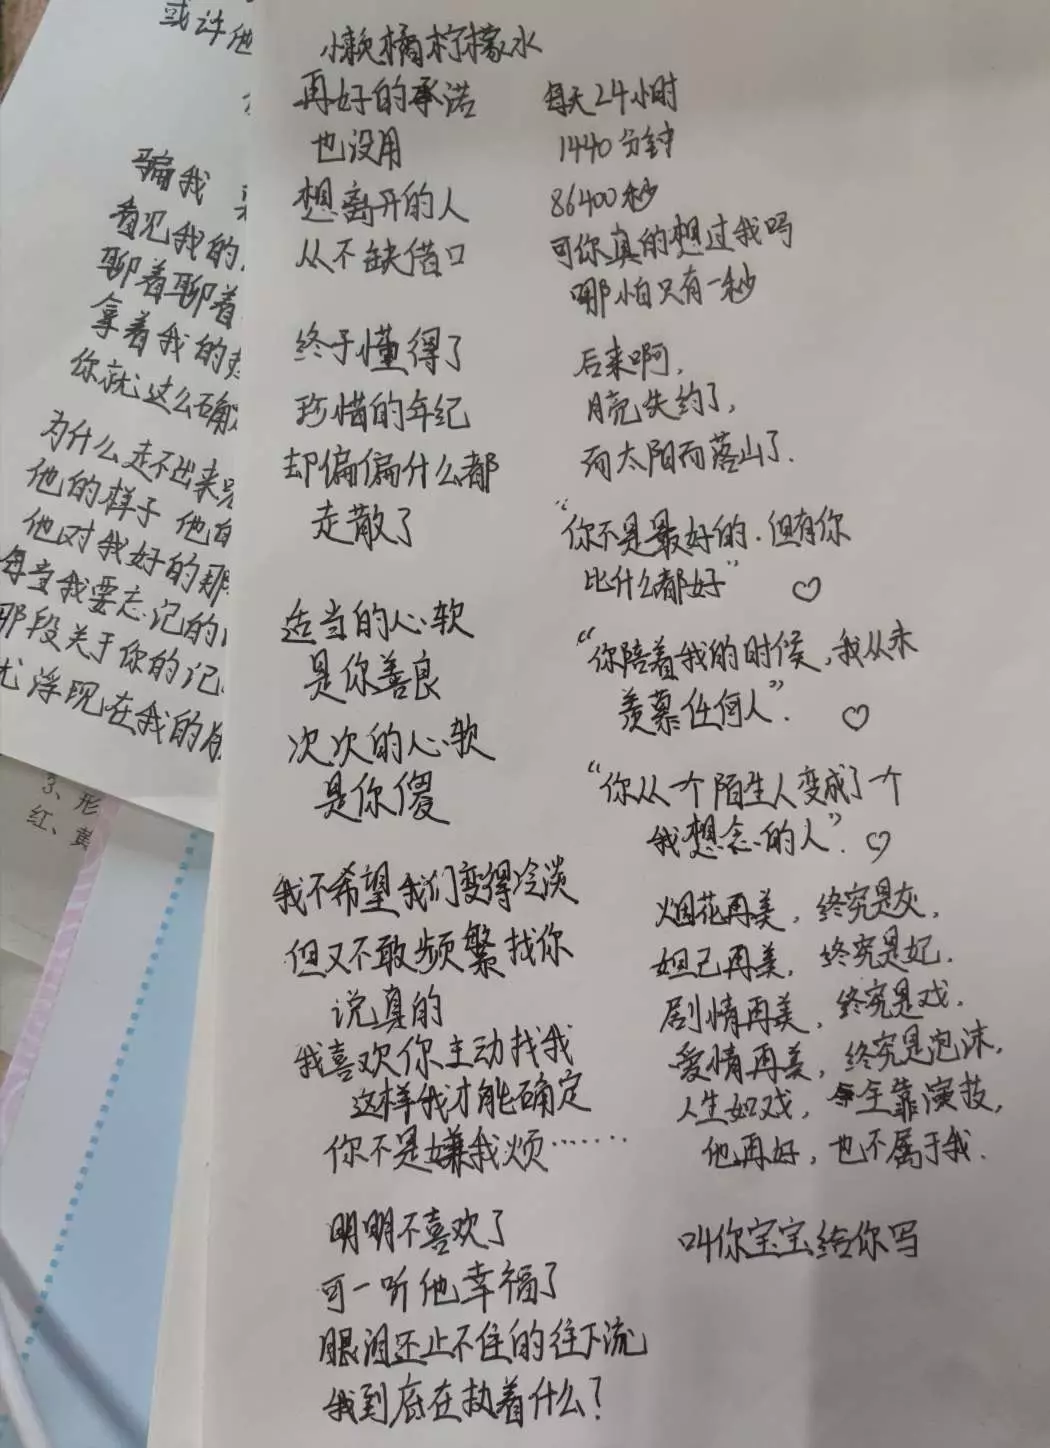 或许他
骗我
看见我的
聊着聊着
拿着我的
你就这么确
为什么走不出来
他的样子 他
他对我好的那
每当我要忘记的
那段关于你的记
尤浮现在我的
3、形
红、黄
懒橘柠檬水
再好的承诺
也没用
想离开的人
从不缺借口
终于懂得了
珍惜的年纪
却偏偏什么都
走散了
适当的心软
是你善良
次次的心软
是你傻
我不希望我们变得冷淡
但又不敢频繁找你
说真的
我喜欢你主动找我
这样我才能确定
你不是嫌我烦……
明明不喜欢了
可一听他幸福了
眼泪还止不住的往下流
我到底在执着什么?
每天24小时
1440分钟
86400秒
可你真的想过我吗
哪怕只有一秒
后来啊,
月亮失约了,
而太阳而落山了.
“你不是最好的.但有你
比什么都好” ♡
“你陪着我的时候,我从未
羡慕任何人”. ♡
“你从一个陌生人变成了一个
我想念的人”. ♡
烟花再美,终究是灰,
妲己再美,终究是妃.
剧情再美,终究是戏.
爱情再美,终究是泡沫,
人生如戏,全靠演技,
他再好,也不属于我.
叫你宝宝给你写